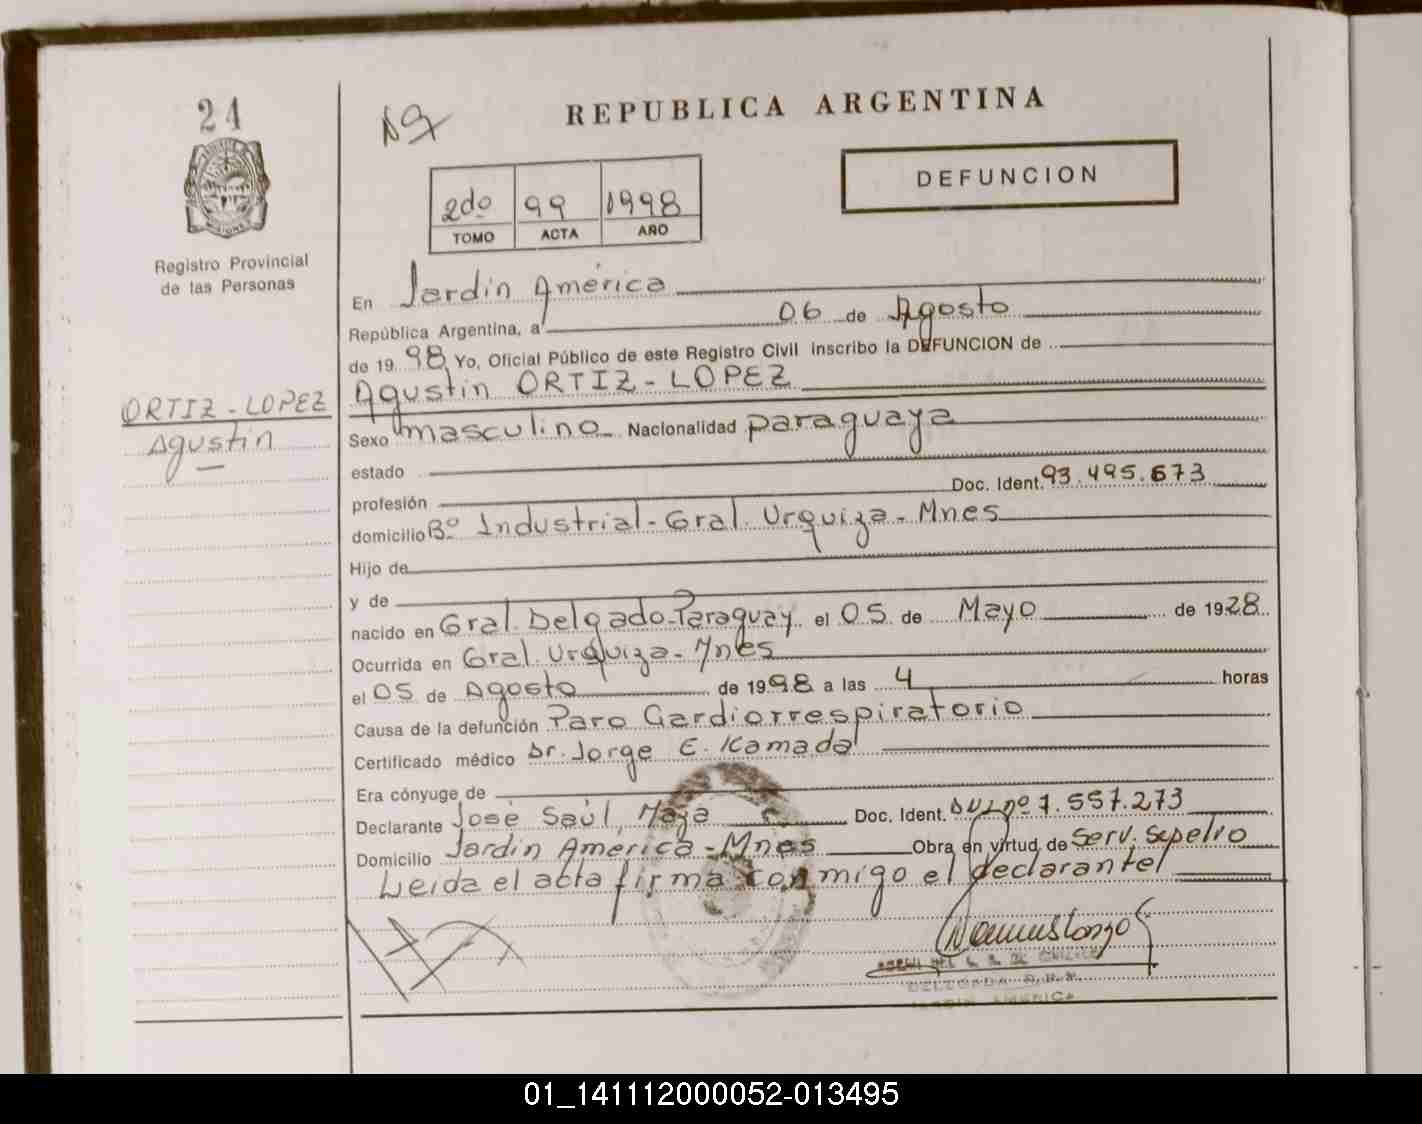 24
REPUBLICA ARGENTINA
DEFUNCION
2do 99 1998
TOMO ACTA AÑO
Registro Provincial
de las Personas
En Jardín América
República Argentina, a 06 de Agosto
de 19 98 Yo, Oficial Público de este Registro Civil inscribo la DEFUNCION de
ORTIZ - LOPEZ
Agustín
Agustín ORTIZ - LOPEZ
Sexo masculino Nacionalidad paraguaya
estado
profesión Doc. Ident. 93.495.673
domicilio Bº Industrial - Gral. Urquiza - Mnes
Hijo de
y de
nacido en Gral. Delgado - Paraguay el 05 de Mayo de 1928
Ocurrida en Gral. Urquiza - Mnes
el 05 de Agosto de 1998 a las 4 horas
Causa de la defunción Paro Cardiorrespiratorio
Certificado médico Dr. Jorge E. Kamada
Era cónyuge de
Declarante José Saúl, Maja Doc. Ident. DNI nº 7.557.273
Domicilio Jardín América - Mnes Obra en virtud de Serv. Sepelio
Leída el acta firma conmigo el declarante
01_141112000052-013495